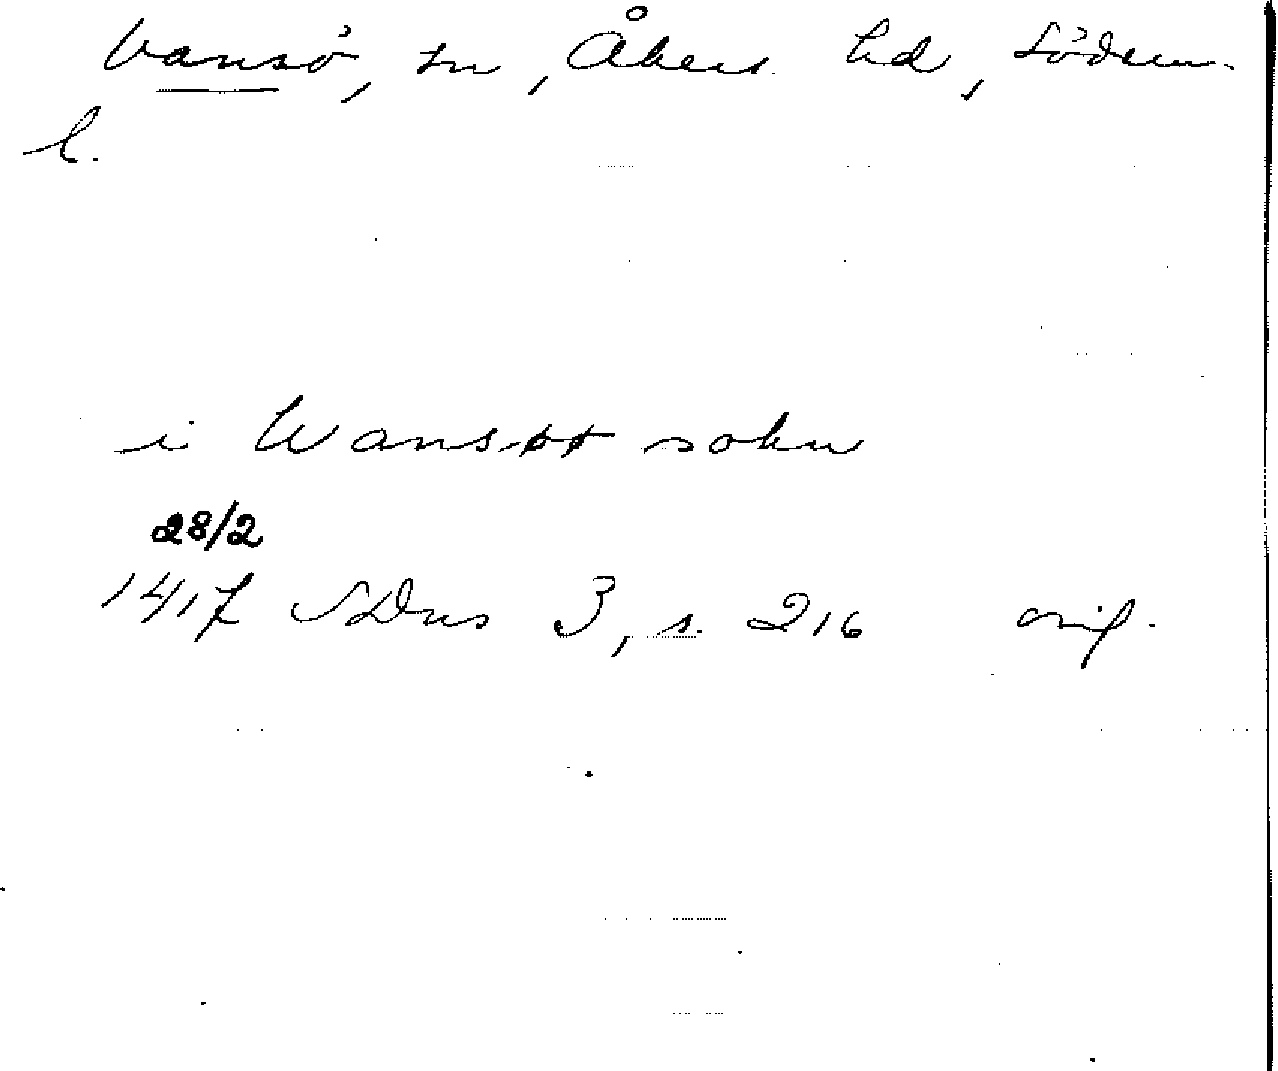 Vansö, sn, Åkers hd, Söderm-
l.
i Wansøø sokn
28/2
1417 SDns 3, s. 216 orig.